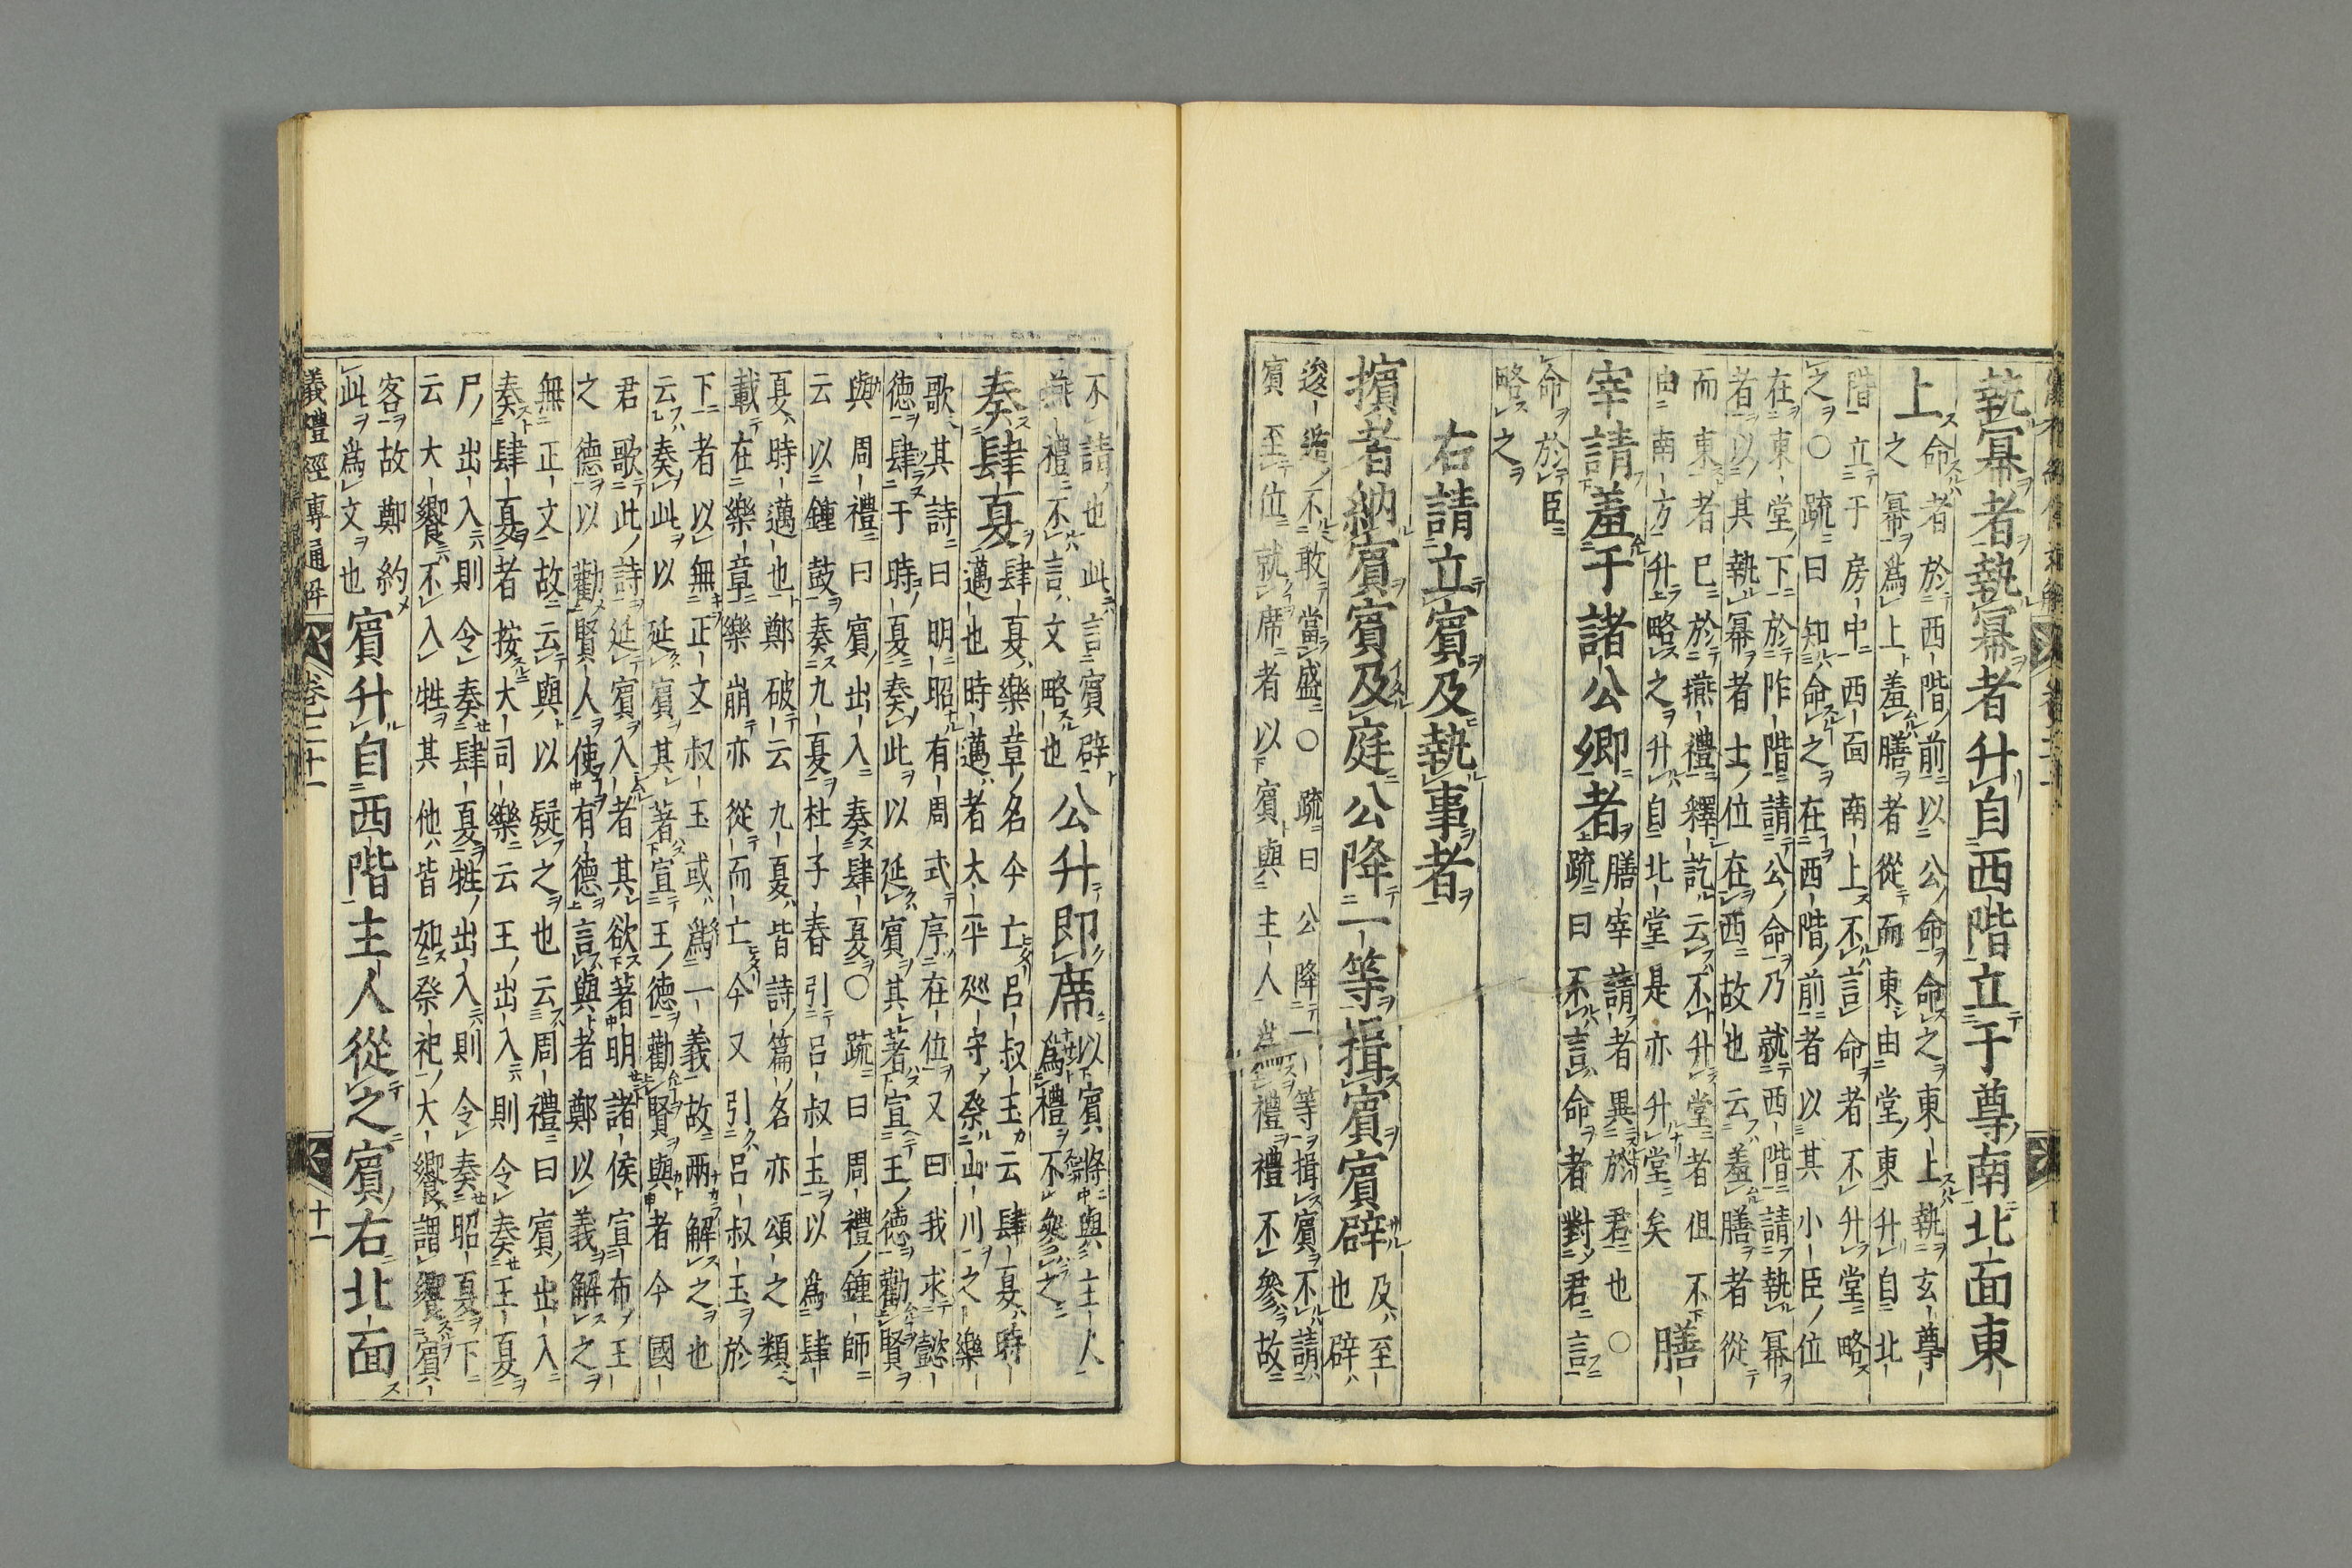 執冪者執冪者升自西階立于尊南北面東
上
命者於西階前以公命命之東上執玄尊
之冪爲上羞膳者從而東由堂東升自北
階立于房中西面南上不言命者不升堂略
之○疏曰知命之在西階前者以其小臣位
在東堂下於阼階請公命乃就西階請執冪
者以其執冪者士位在西故也云羞膳者從
而東者已於燕禮釋訖云不升堂者但不
由南方升略之升自北堂是亦升堂矣
膳
宰請羞于諸公卿者
膳宰請者異於君也○
疏曰不言命者對君言
命於臣
略之
右請立賓及執事者
擯者納賓賓及庭公降一等揖賓賓辟
及至
也辟
逡遁不敢當盛○疏曰公降一等揖賓不請
賓至位就席者以賓與主人為禮禮不參故
不請也此言賓辟
燕禮不言文略也
公升即席
以賓將與主人
爲禮不參之
奏肆夏
肆夏樂章名今亡呂叔玉云肆夏時
邁也時邁者大平巡守祭山川之樂
歌其詩曰明昭有周式序在位又曰我求懿
德肆于時夏奏此以延賓其著宣王德勸賢
與周禮曰賓出入奏肆夏○疏曰周禮鐘師
云以鐘鼓奏九夏杜子春引呂叔玉以爲肆
夏時邁也鄭破云九夏皆詩篇名亦頌之類
載在樂章樂崩亦從而亡今又引呂叔玉於
下者以無正文叔玉或爲一義故兩解之也
云奏此以延賓其著宣王德勸賢與者今國
君歌此詩延賓入者其欲著明諸侯宣布王
之德以勸賢人使有德言與者鄭以義解之
無正文故云與以疑之也云周禮曰賓出入
奏肆夏者按大司樂云王出入則令奏王夏
尸出入則令奏肆夏牲出入則令奏昭夏下
云大饗不入牲其他皆如祭祀大饗謂饗賓
客故鄭約
此爲文也
賓升自西階主人從之賓右北面
儀禮經專通解 卷二十一 十一